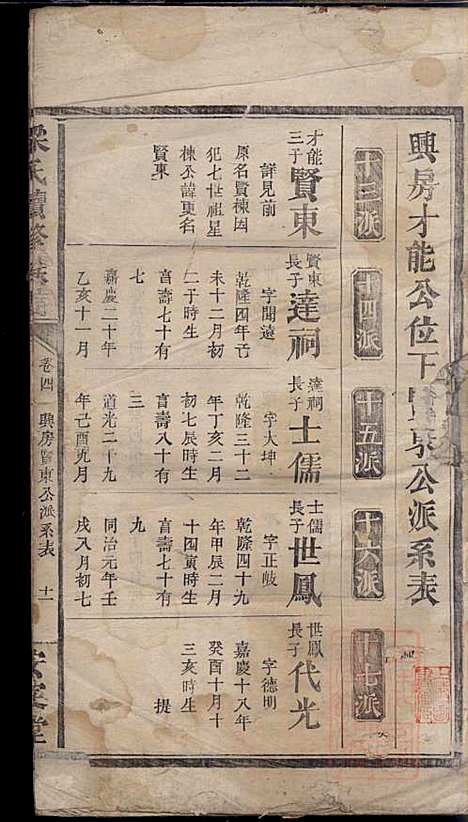 興房才能公位下賢東公派系表
十三派
十四派
十五派
十六派
十七派
才能
三子
賢東
詳見前
原名賢棟因
犯七世祖星
棟公諱更名
賢東
賢東
長子
達祠
字開遠
乾隆四年己
未十二月初
二子時生
享壽七十有
七
嘉慶二十年
乙亥十一月
達祠
長子
士儒
字大坤
乾隆三十二
年丁亥二月
初七辰時生
享壽八十有
三
道光二十九
年己酉九月
士儒
長子
世鳳
字正岐
乾隆四十九
年甲辰二月
十四寅時生
享壽七十有
九
同治元年壬
戌八月初七
世鳳
長子
代光
字德明
嘉慶十八年
癸酉十月十
三亥時生
提
氏續修族譜
卷四
興房賢東公派系表
十一
堂